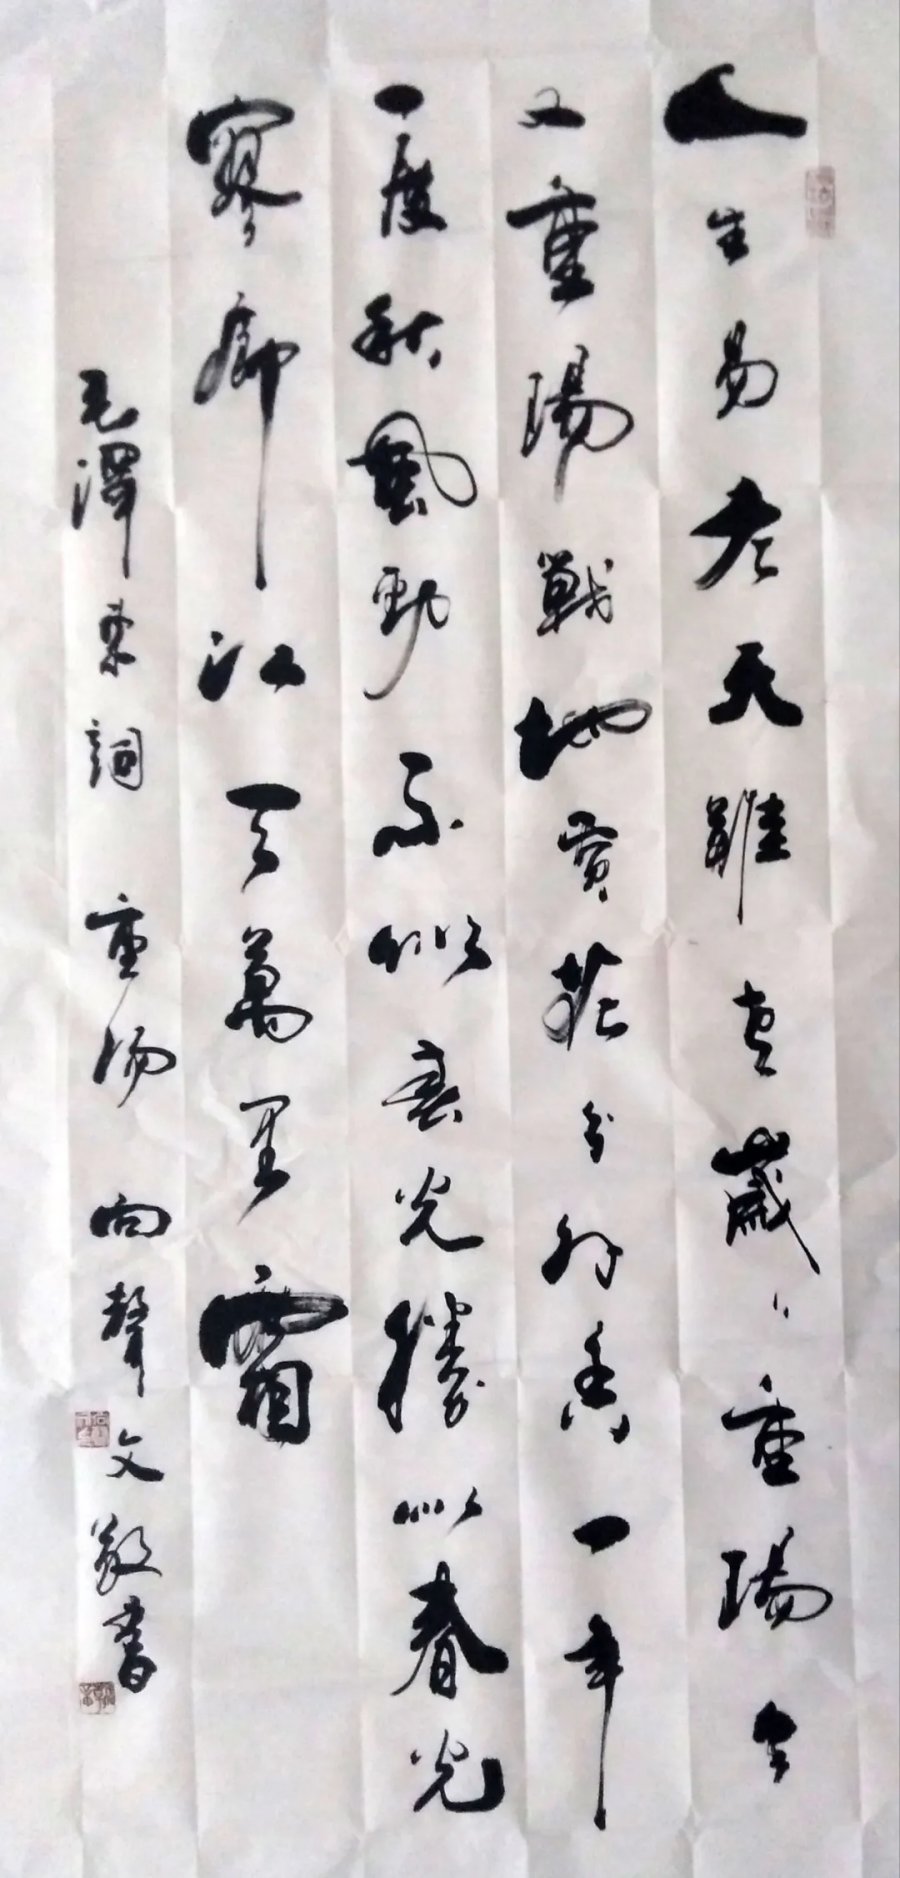 人生易老天難老歲〻重陽今
又重陽戰地黃花分外香一年
一度秋風勁不似春光勝似春光
寥廓江天萬里霜
毛澤東詞 重阳 向聲文敬書